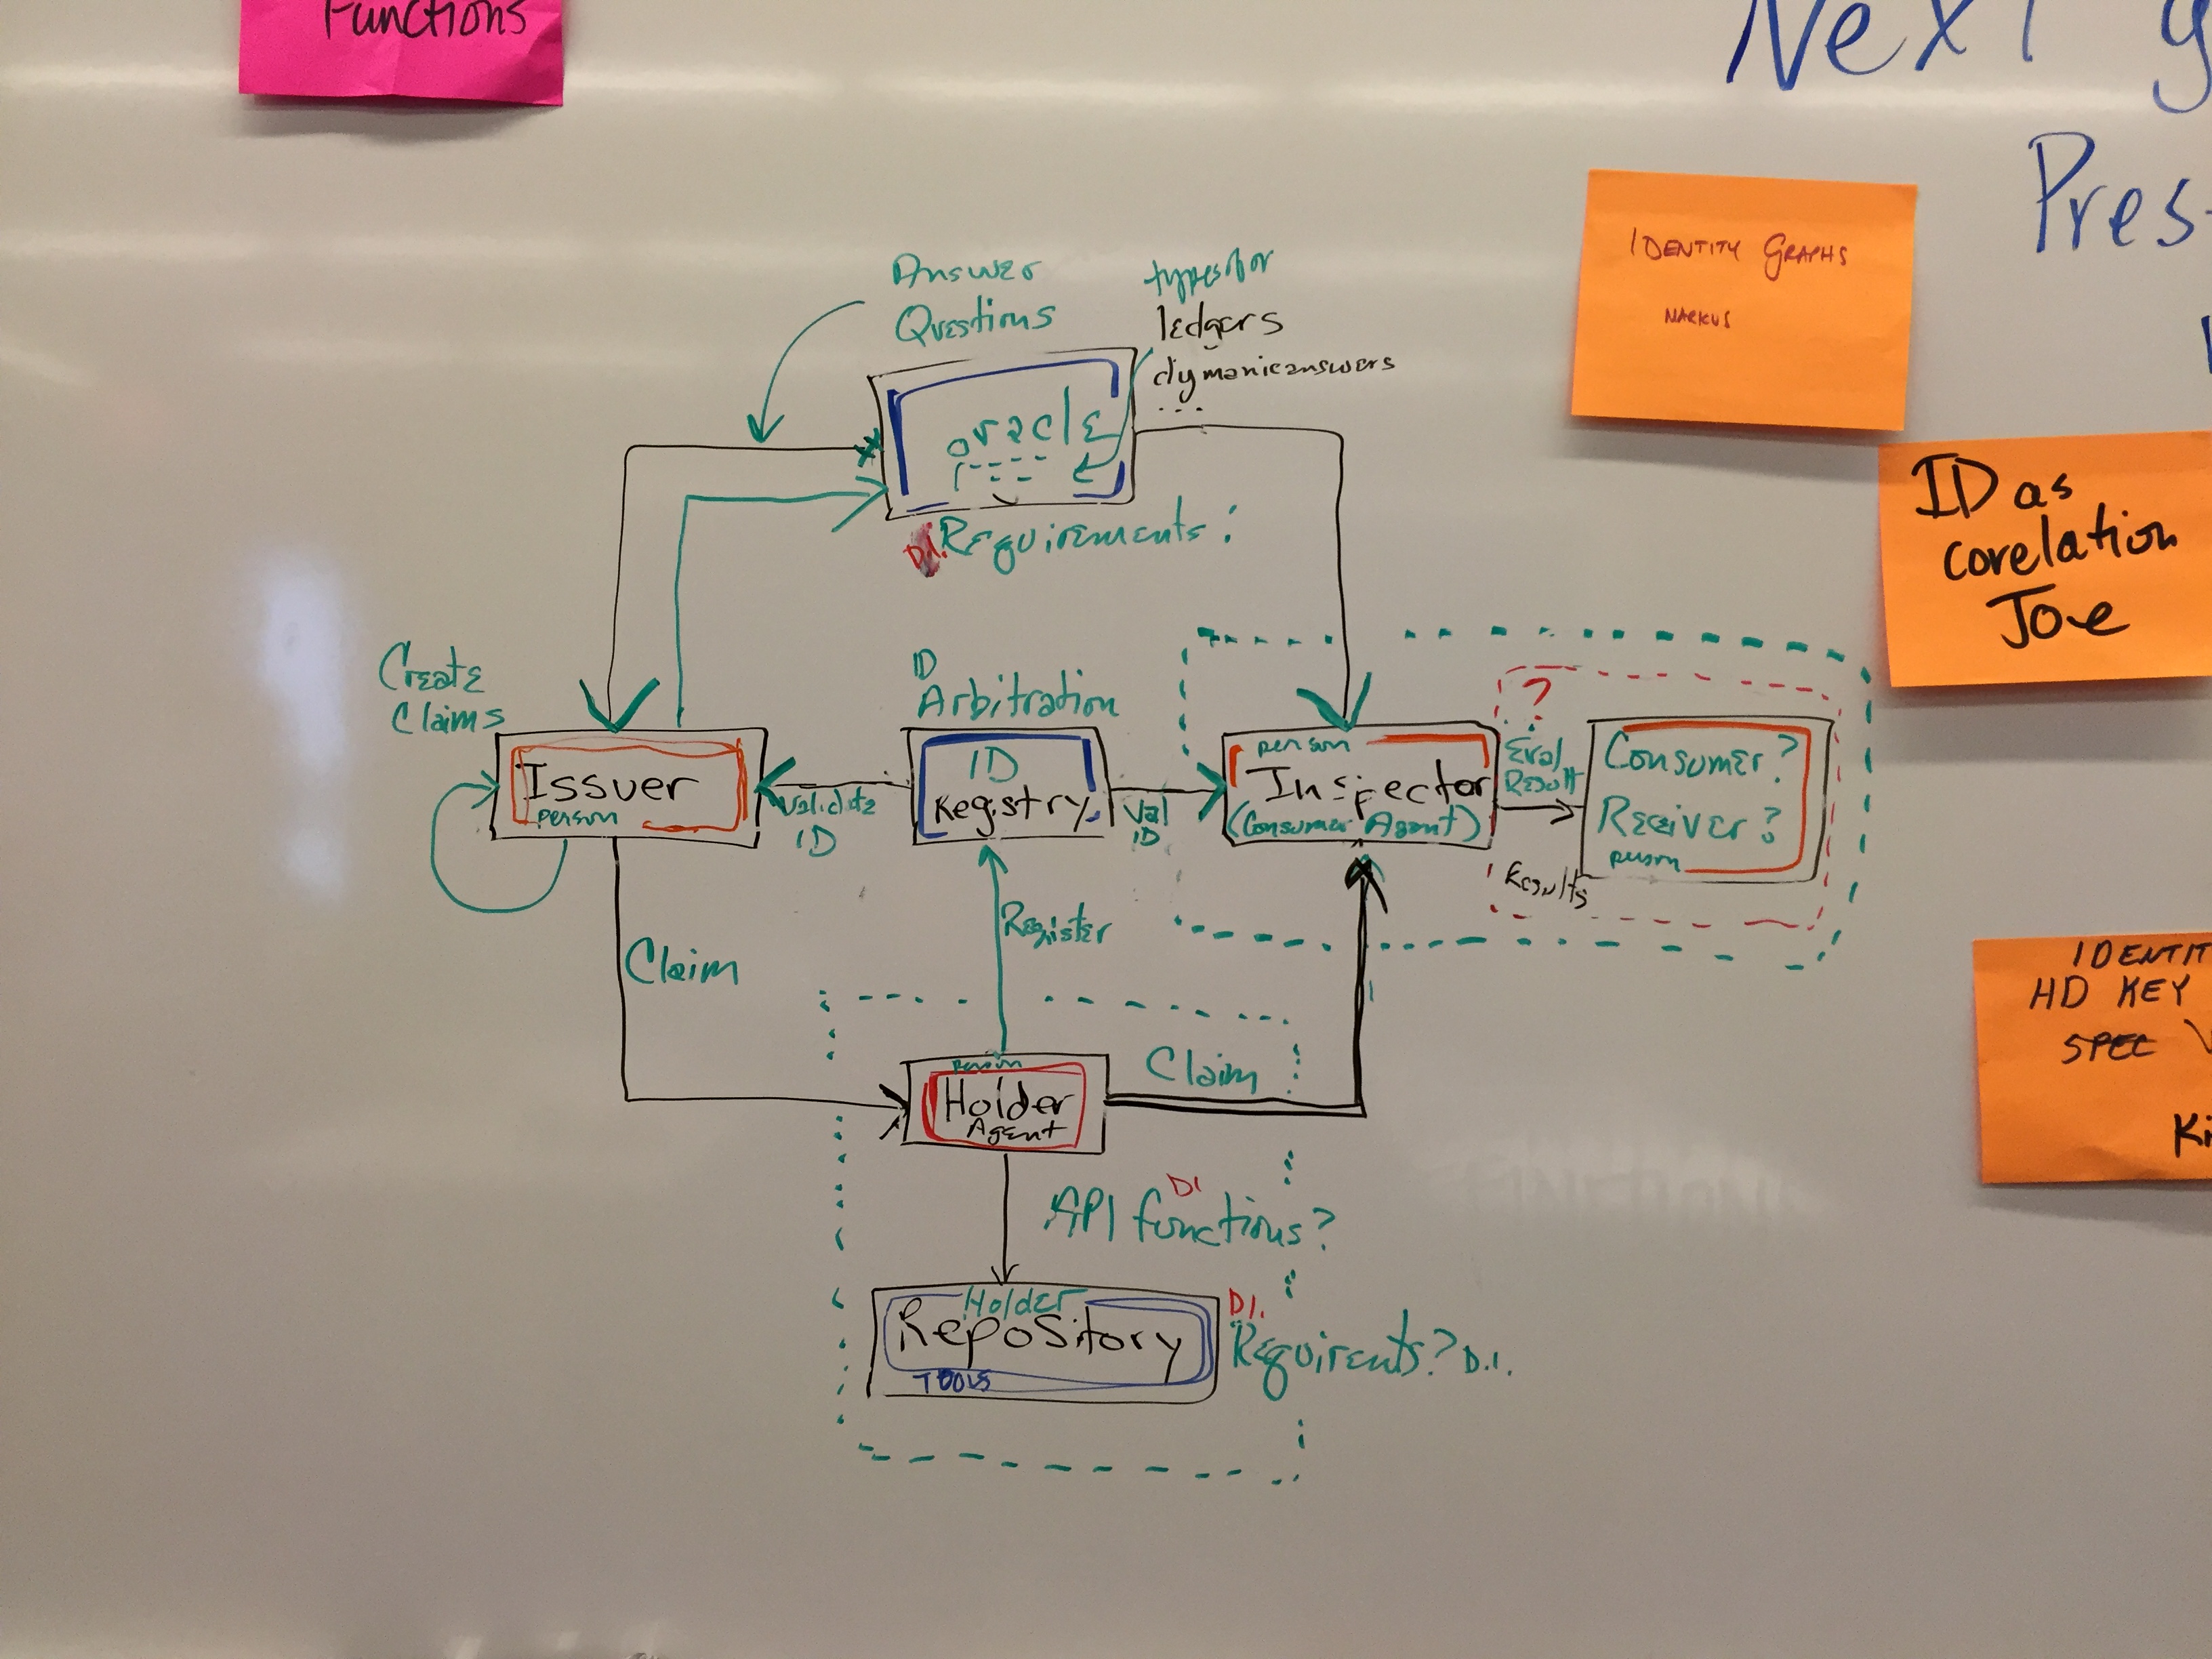 Functions
Next g
Pres-
IDENTITY GRAPHS
ID as
corelation
Joe
IDENTIT
HD KEY
SPEC
Ki
Answer
Questions
types for
ledgers
dymanic answers
...
oracle
D.I. Requirements:
Create
Claims
Issuer
person
Validate
ID
ID
Arbitration
ID
Registry
Val
ID
person
Inspector
(Consumer Agent)
?
Eval
Result
Results
Consumer?
Receiver?
person
Claim
Register
person
Holder
Agent
Claim
DI
API functions?
Holder
Repository
TOOLS
D.I.
Requirents? D.I.